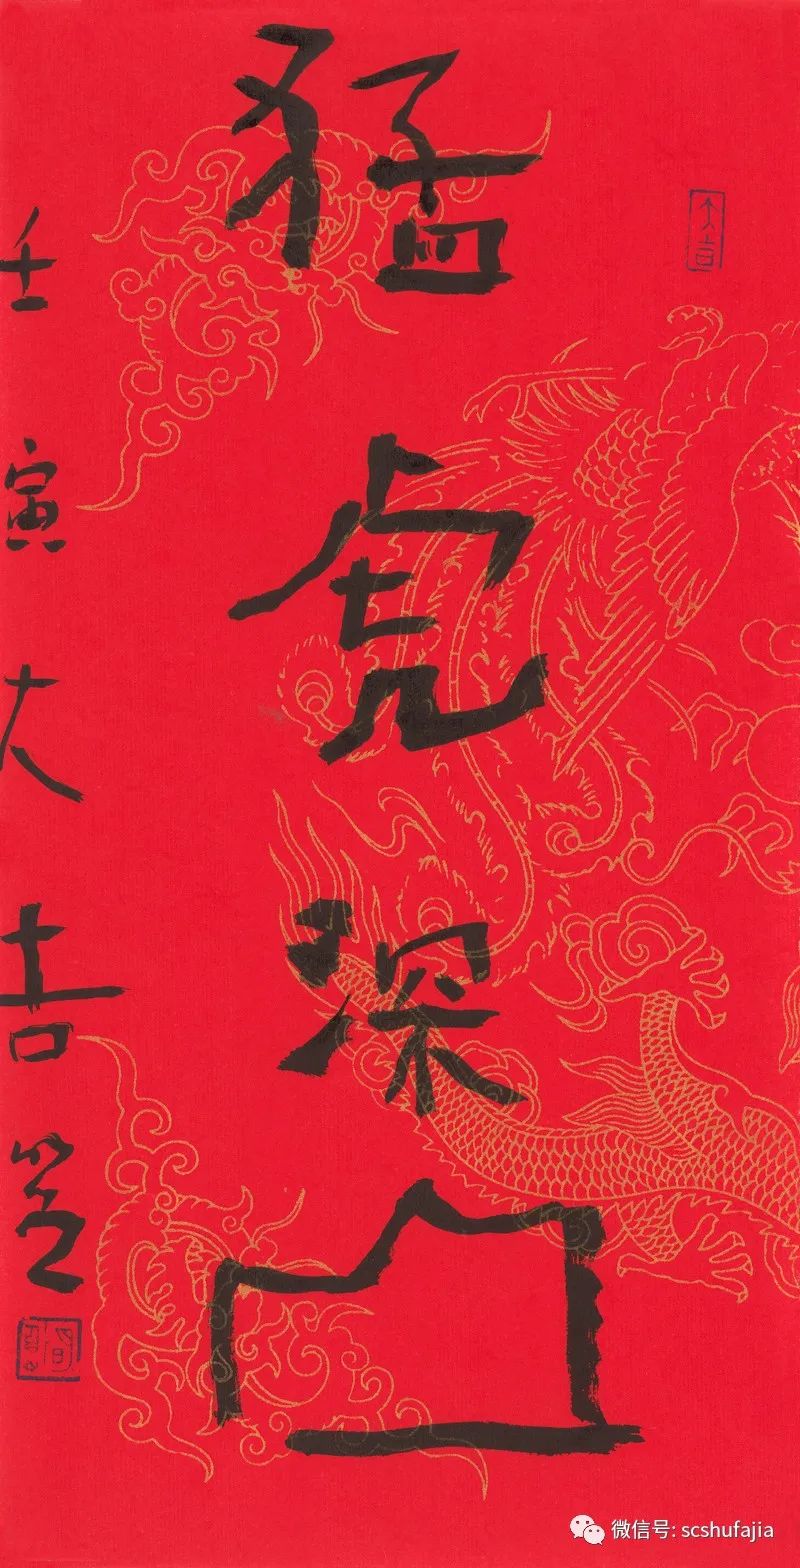 猛虎深山
壬寅大吉
微信号: scshufajia